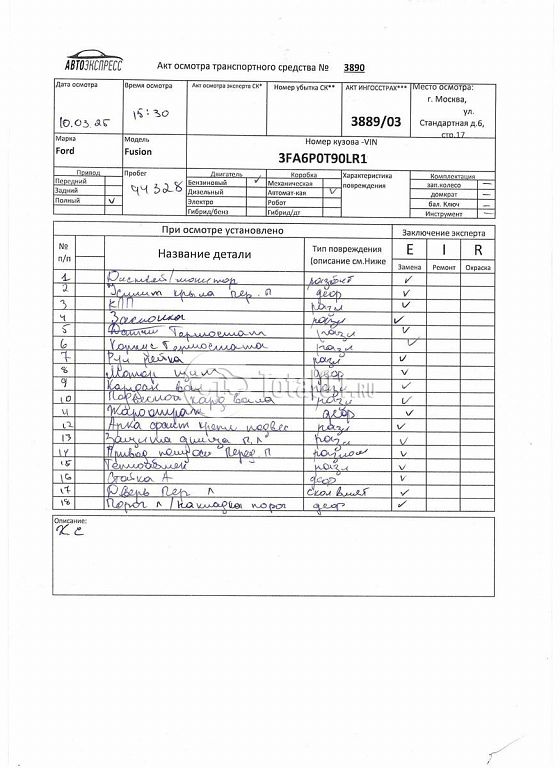 АВТОЭКСПРЕСС
Акт осмотра транспортного средства № 3890
Дата осмотра
10.03.25
Время осмотра
15:30
Акт осмотра эксперта СК*
Номер убытка СК**
АКТ ИНГОССТРАХ***
3889/03
Место осмотра:
г. Москва,
ул.
Стандартная д.6,
стр.17
Марка
Ford
Модель
Fusion
Номер кузова -VIN
3FA6P0T90LR1
Привод
Передний
Задний
Полный V
Пробег
94328
Двигатель
Бензиновый V
Дизельный
Электро
Гибрид/бенз
Коробка
Механическая
Автомат-кая V
Робот
Гибрид/дт
Характеристика
повреждения
Комплектация
зап.колесо —
домкрат —
бал. Ключ —
Инструмент —
При осмотре установлено
Заключение эксперта
№
п/п
Название детали
Тип повреждения
(описание см.Ниже
E I R
Замена Ремонт Окраска
1 Дисплей/монитор разбит V
2 Усилит крыла пер. П деф V
3 КПП разл V
4 Заслонка разл V
5 Датчик Термостат разл V
6 Корпус Термостата разл V
7 Рул рейка разл V
8 Мотор деф V
9 Кардан вал разл V
10 Подвесной кард вала разл V
11 Жароотраж деф V
12 Арка крепл подвес разл V
13 Защита днища П.Л разл V
14 Привод полуоси Перед. П разлом V
15 разл V
16 Стойка А деф V
17 Дверь Пер Л V
18 Порог Л /Накладка порог деф V
Описание:
Total01.RU